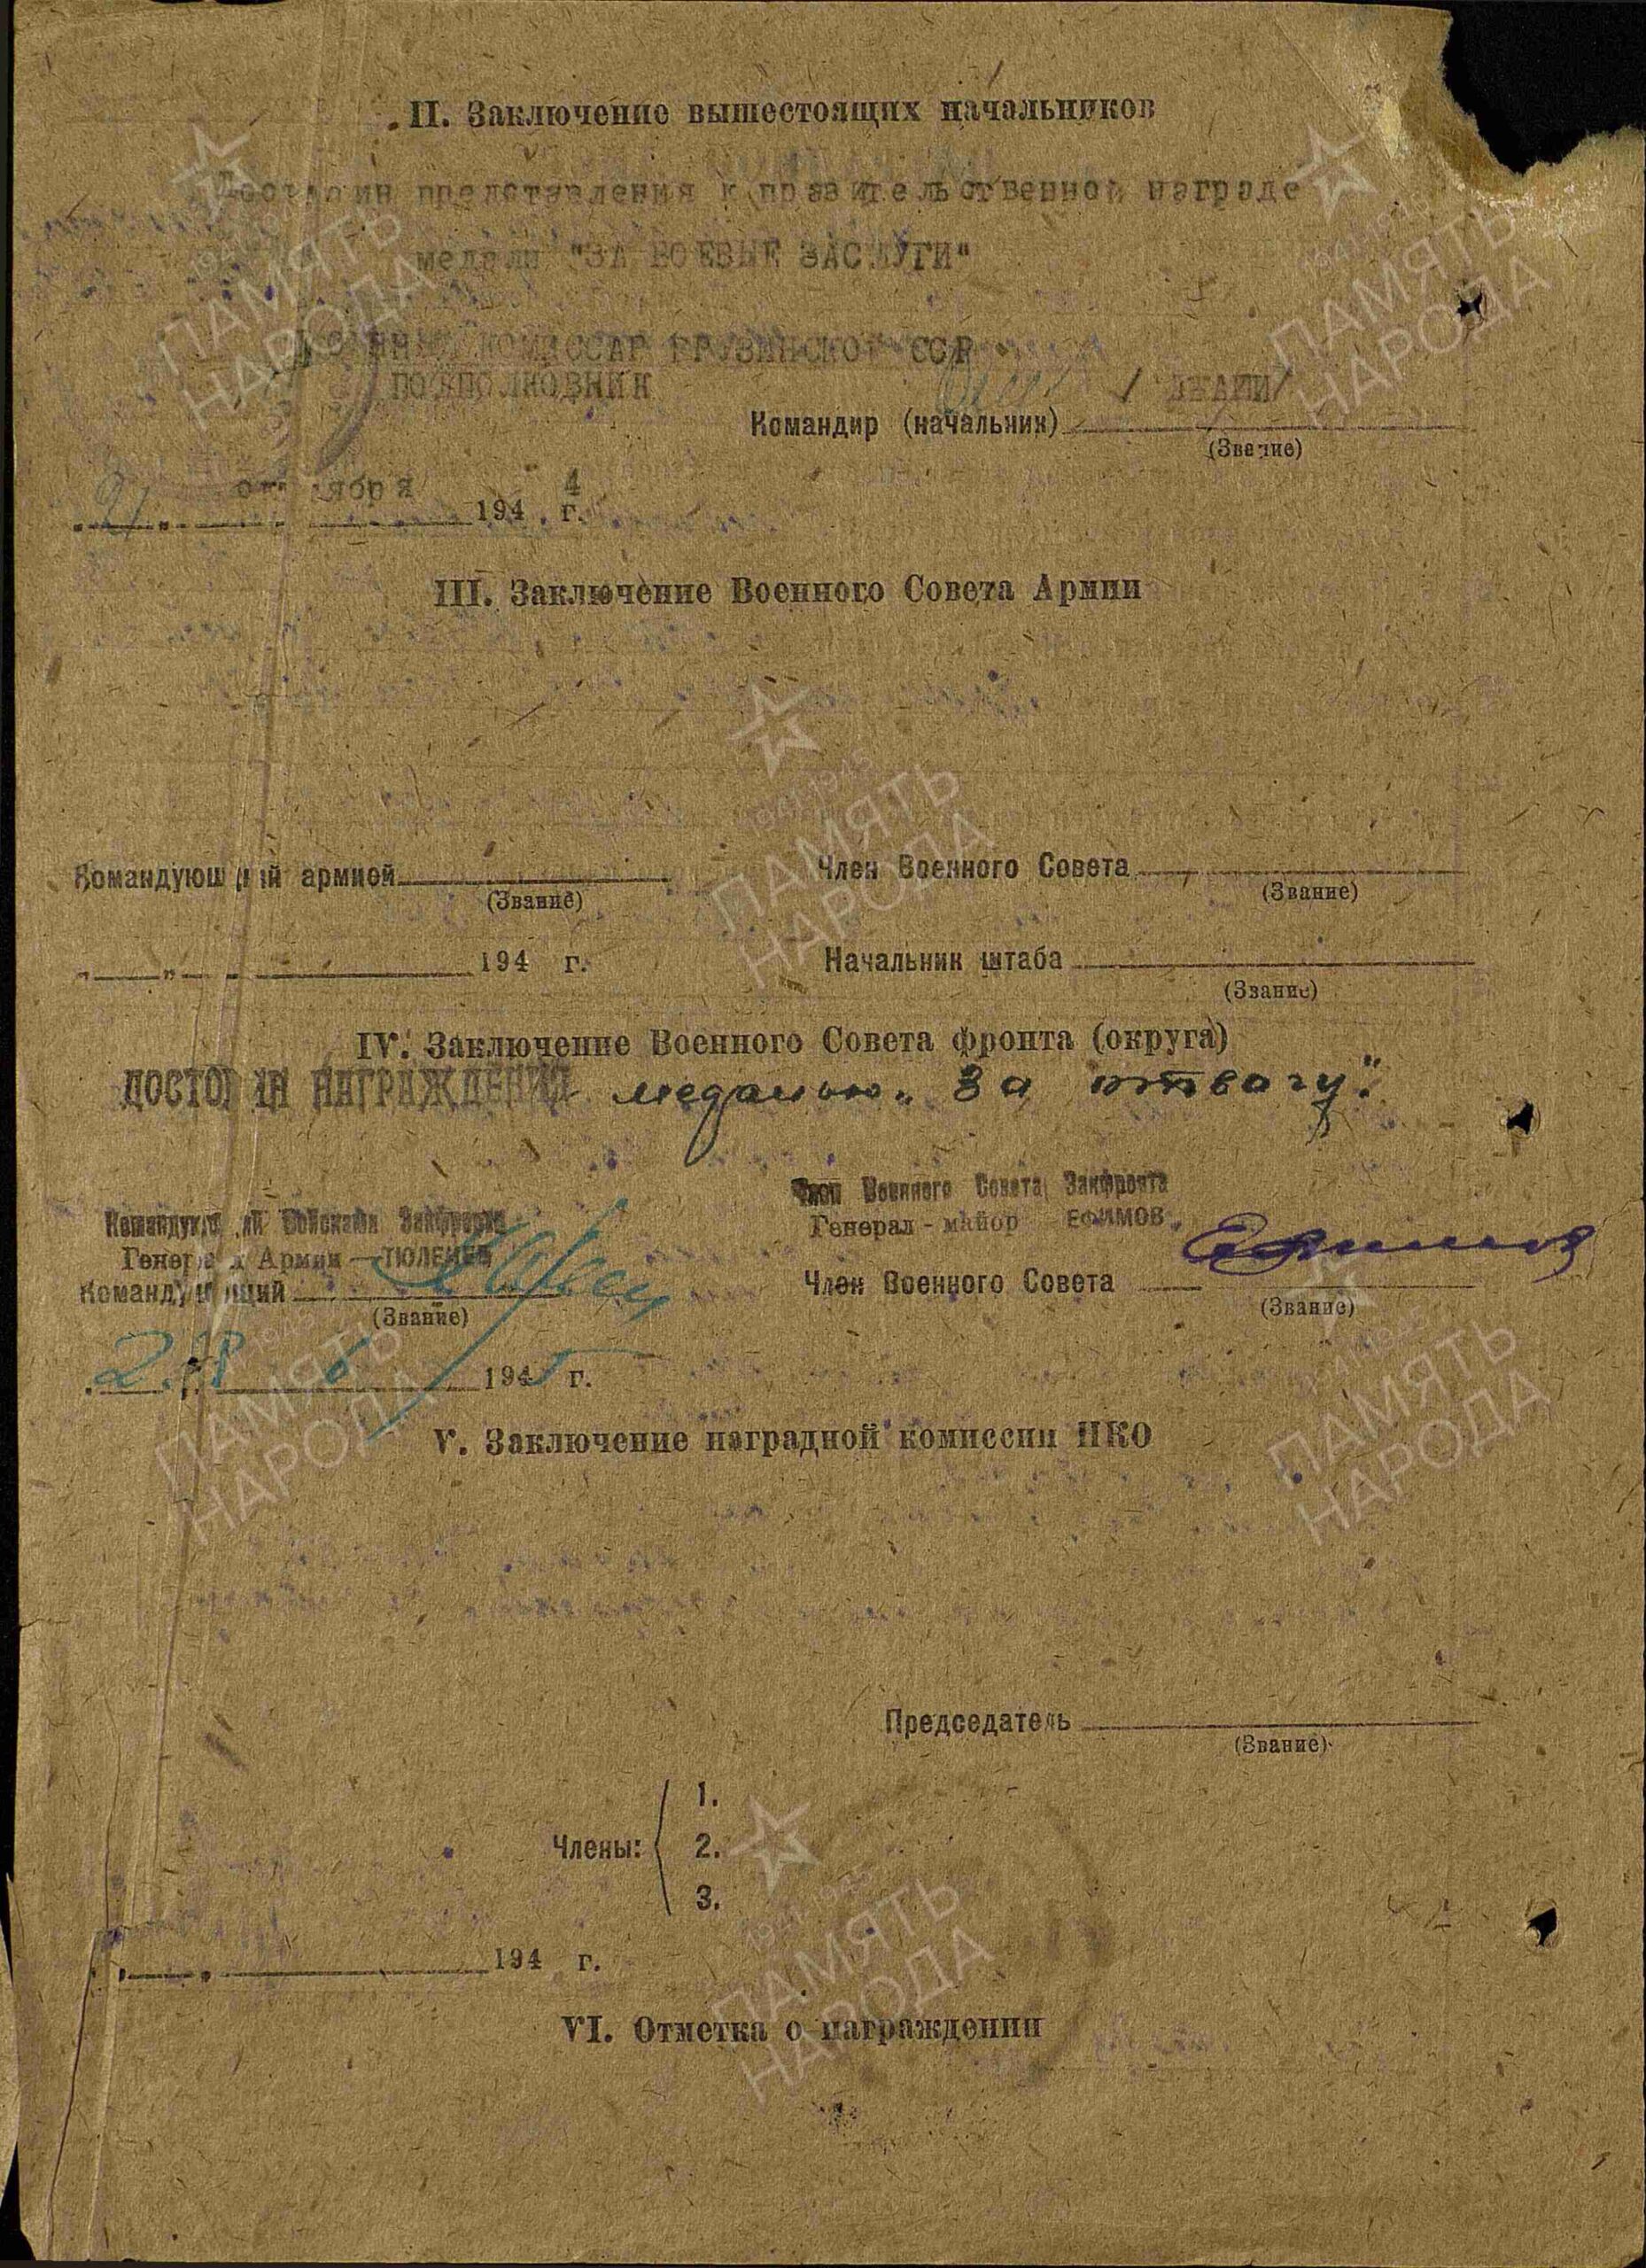 II. Заключение вышестоящих начальников
Достоин представления к правительственной награде
медали "ЗА БОЕВЫЕ ЗАСЛУГИ"
КОМИССАР ГРУЗИНСКОЙ ССР
ПОДПОЛКОВНИК
Командир (начальник)
(Звание)
21 октября 1944 г.
III. Заключение Военного Совета Армии
Командующий армией
Член Военного Совета
(Звание)
(Звание)
194 г.
Начальник штаба
(Звание)
IV. Заключение Военного Совета фронта (округа)
ДОСТОИН НАГРАЖДЕНИЯ медалью „За отвагу".
Член Военного Совета Закфронта
Командующий Войсками Закфронта
Генерал-майор ЕФИМОВ
Генерал Армии —ТЮЛЕНЕВ
Командующий
Член Военного Совета
(Звание)
(Звание)
1945 г.
V. Заключение наградной комиссии НКО
Председатель
(Звание)
Члены:
1.
2.
3.
194 г.
VI. Отметка о награждении
1941-1945
ПАМЯТЬ
НАРОДА